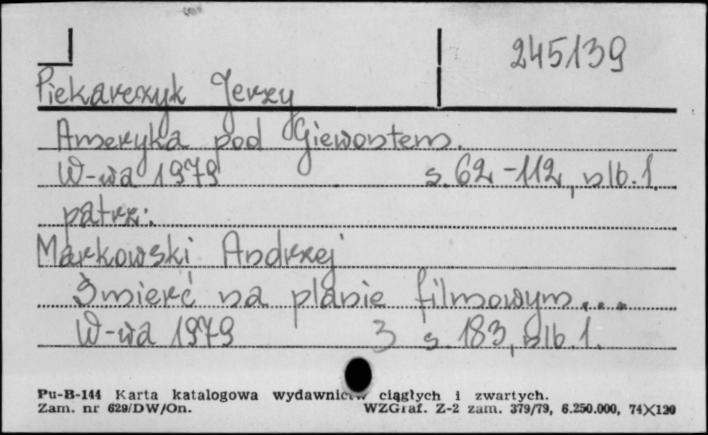 245139
Piekarczyk Jerzy
Ameryka pod Giewontem.
W-wa 1979 s. 62-112, nlb. 1.
patrz:
Markowski Andrzej
Śmierć na planie filmowym...
W-wa 1979 3 s. 183, nlb. 1.
Pu-B-144 Karta katalogowa wydawnictw ciągłych i zwartych.
Zam. nr 629/DW/On. WZGraf. Z-2 zam. 379/79, 6.250.000, 74X120